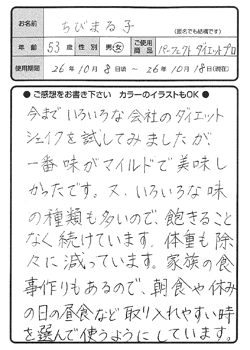 お名前 ちびまる子 (匿名でも結構です)
年齢 53歳 性別 男・女 ご使用商品 パーフェクトダイエットプロ
使用期間 26年10月8日頃 ～ 26年10月18日(現在)
●ご感想をお書き下さい カラーのイラストもOK●
今までいろいろな会社のダイエット
シェイクを試してみましたが
一番味がマイルドで美味し
かったです。又、いろいろな味
の種類も多いので、飽きること
なく続けています。体重も除
々に減っています。家族の食
事作りもあるので、朝食や休み
の日の昼食など取り入れやすい時
を選んで使うようにしています。